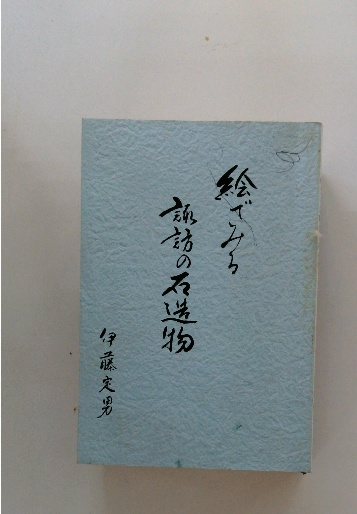 絵でみる
諏訪の石造物
伊藤定男